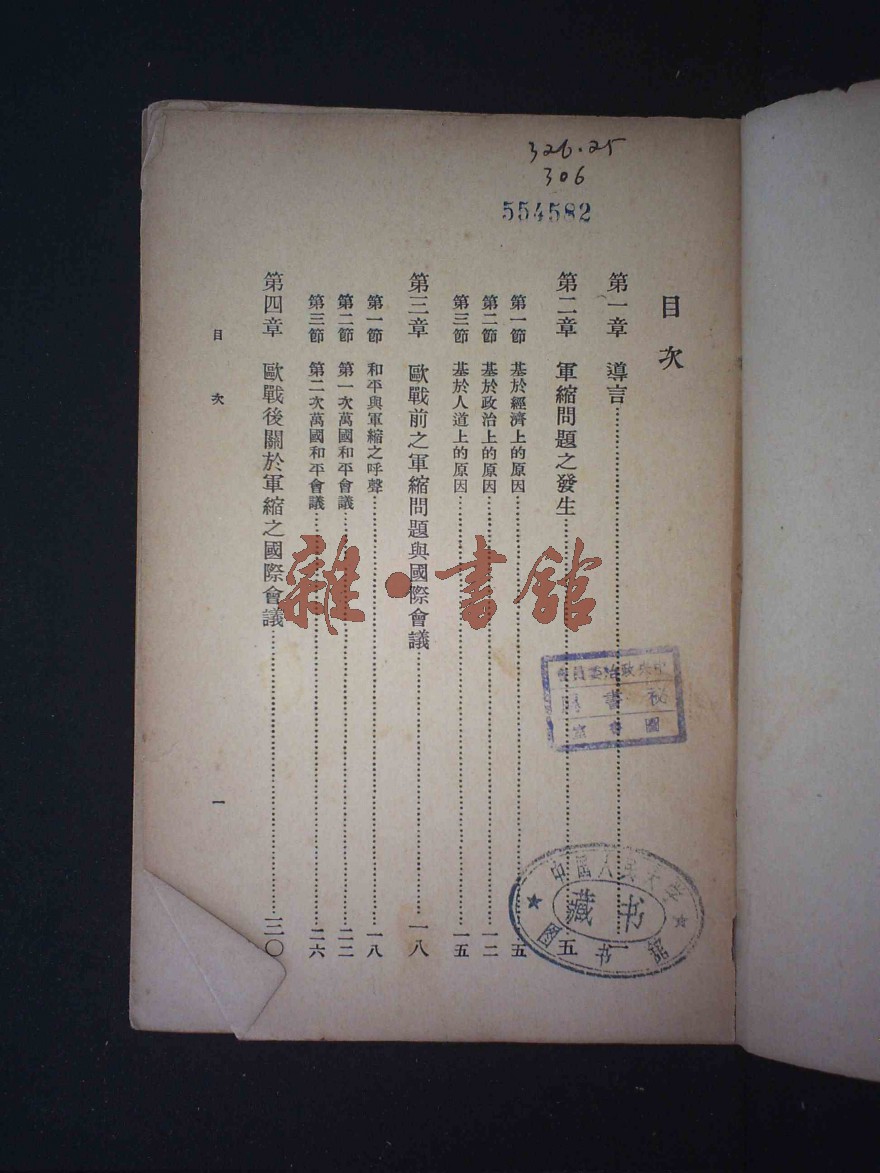 326.25
306
554582
目次
第一章 導言……一
第二章 軍縮問題之發生……五
第一節 基於經濟上的原因……五
第二節 基於政治上的原因……一二
第三節 基於人道上的原因……一五
第三章 歐戰前之軍縮問題與國際會議……一八
第一節 和平與軍縮之呼聲……一八
第二節 第一次萬國和平會議……二二
第三節 第二次萬國和平會議……二六
第四章 歐戰後關於軍縮之國際會議……三〇
目次
一
雜·書館
中央政治委員會
秘書
圖書室
中国人民大学
藏书
图书馆